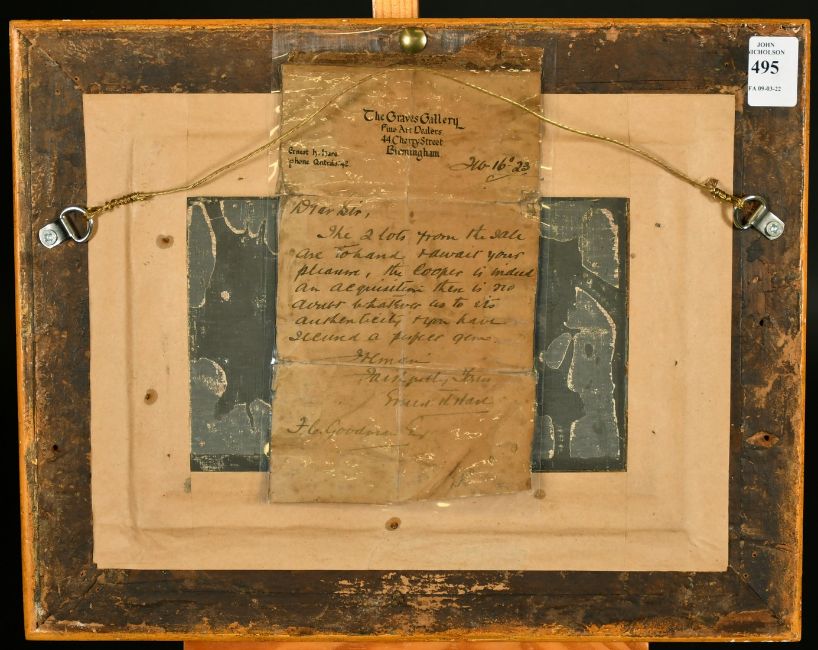 JOHN
NICHOLSON
495
FA 09-03-22
The Graves Gallery
Fine Art Dealers
44 Cherry Street
Birmingham
Ernest H. Hare
Feb 16° 23
Dear Sir,
The 2 lots from the Sale
are to hand & await your
pleasure, the Cooper is indeed
an acquisition there is no
doubt whatever as to its
authenticity & you have
secured a perfect gem
I remain
Faithfully Yours
Ernest H Hare
F C Goodman Esq